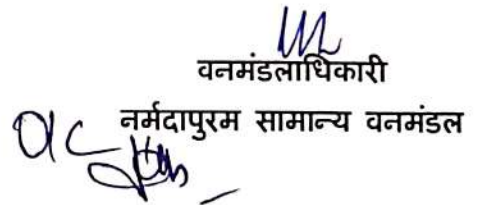 वनमंडलाधिकारी
नर्मदापुरम सामान्य वनमंडल